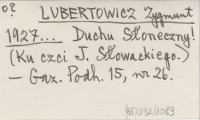 o?
LUBERTOWICZ Zygmunt
1927... Duchu Słoneczny!
(Ku czci J. Słowackiego.)
— Gaz. Podh. 15, nr 26.